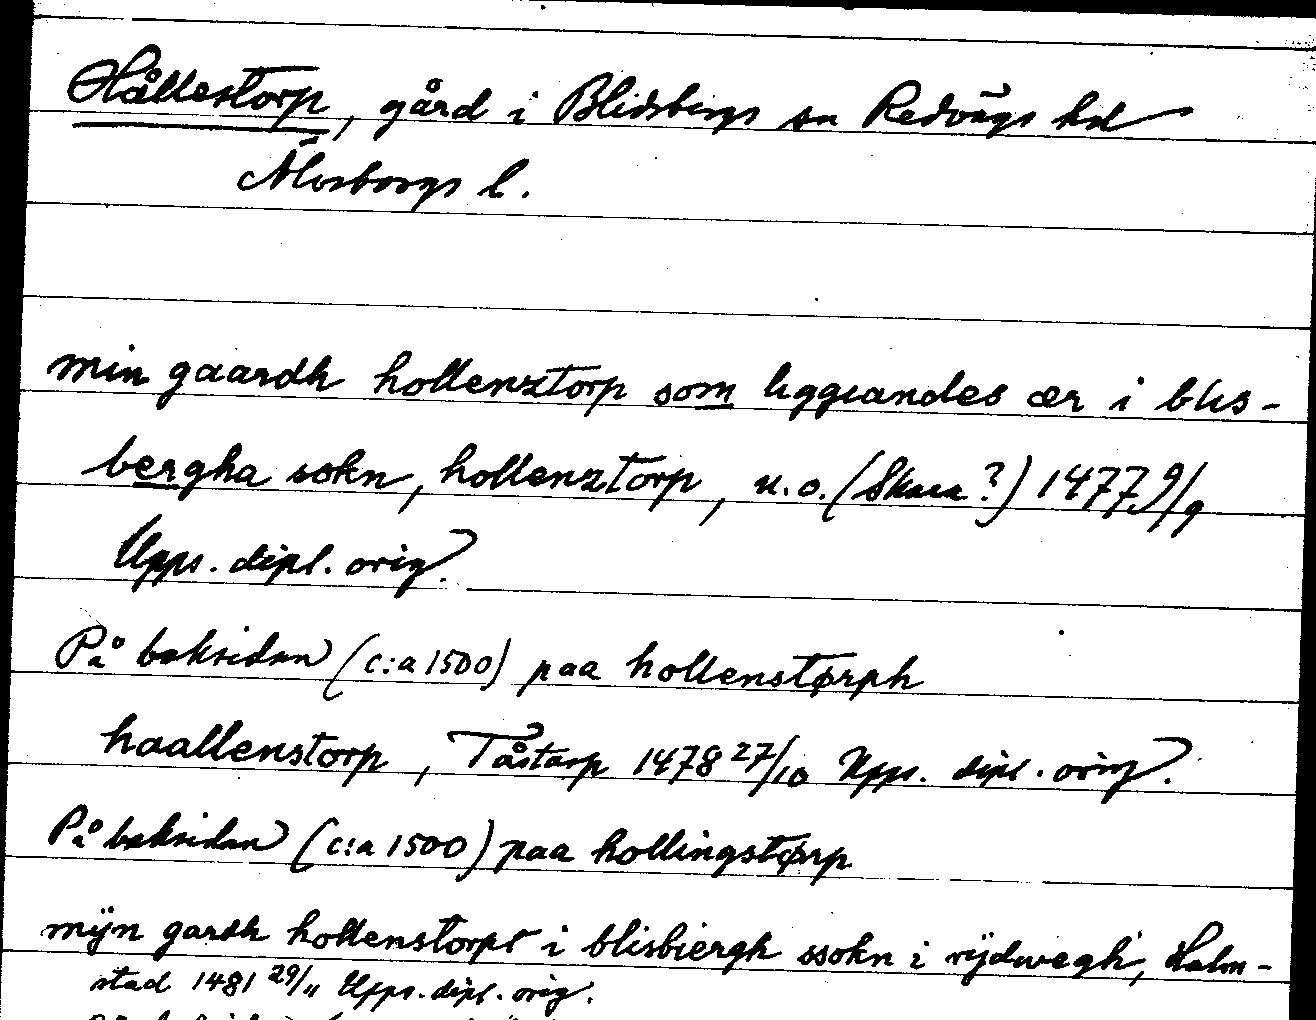 Hållestorp, gård i Blidsbergs sn Redvägs hd
Älvsborgs l.
min gaardh hollenztorp som liggiandes ær i blis-
bergha sokn, hollenztorp, u.o. (Skara?) 1477 9/9
Upps. dipl. orig.
På baksidan (c:a 1500) paa hollenstørph
haallenstorp, Tåstarp 1478 27/10 Upps. dipl. orig.
På baksidan (c:a 1500) paa hollingstørp
mÿn gardh hollenstorpt i blisbiergh ssokn i rÿdwegh, Halm-
stad 1481 29/11 Upps. dipl. orig.